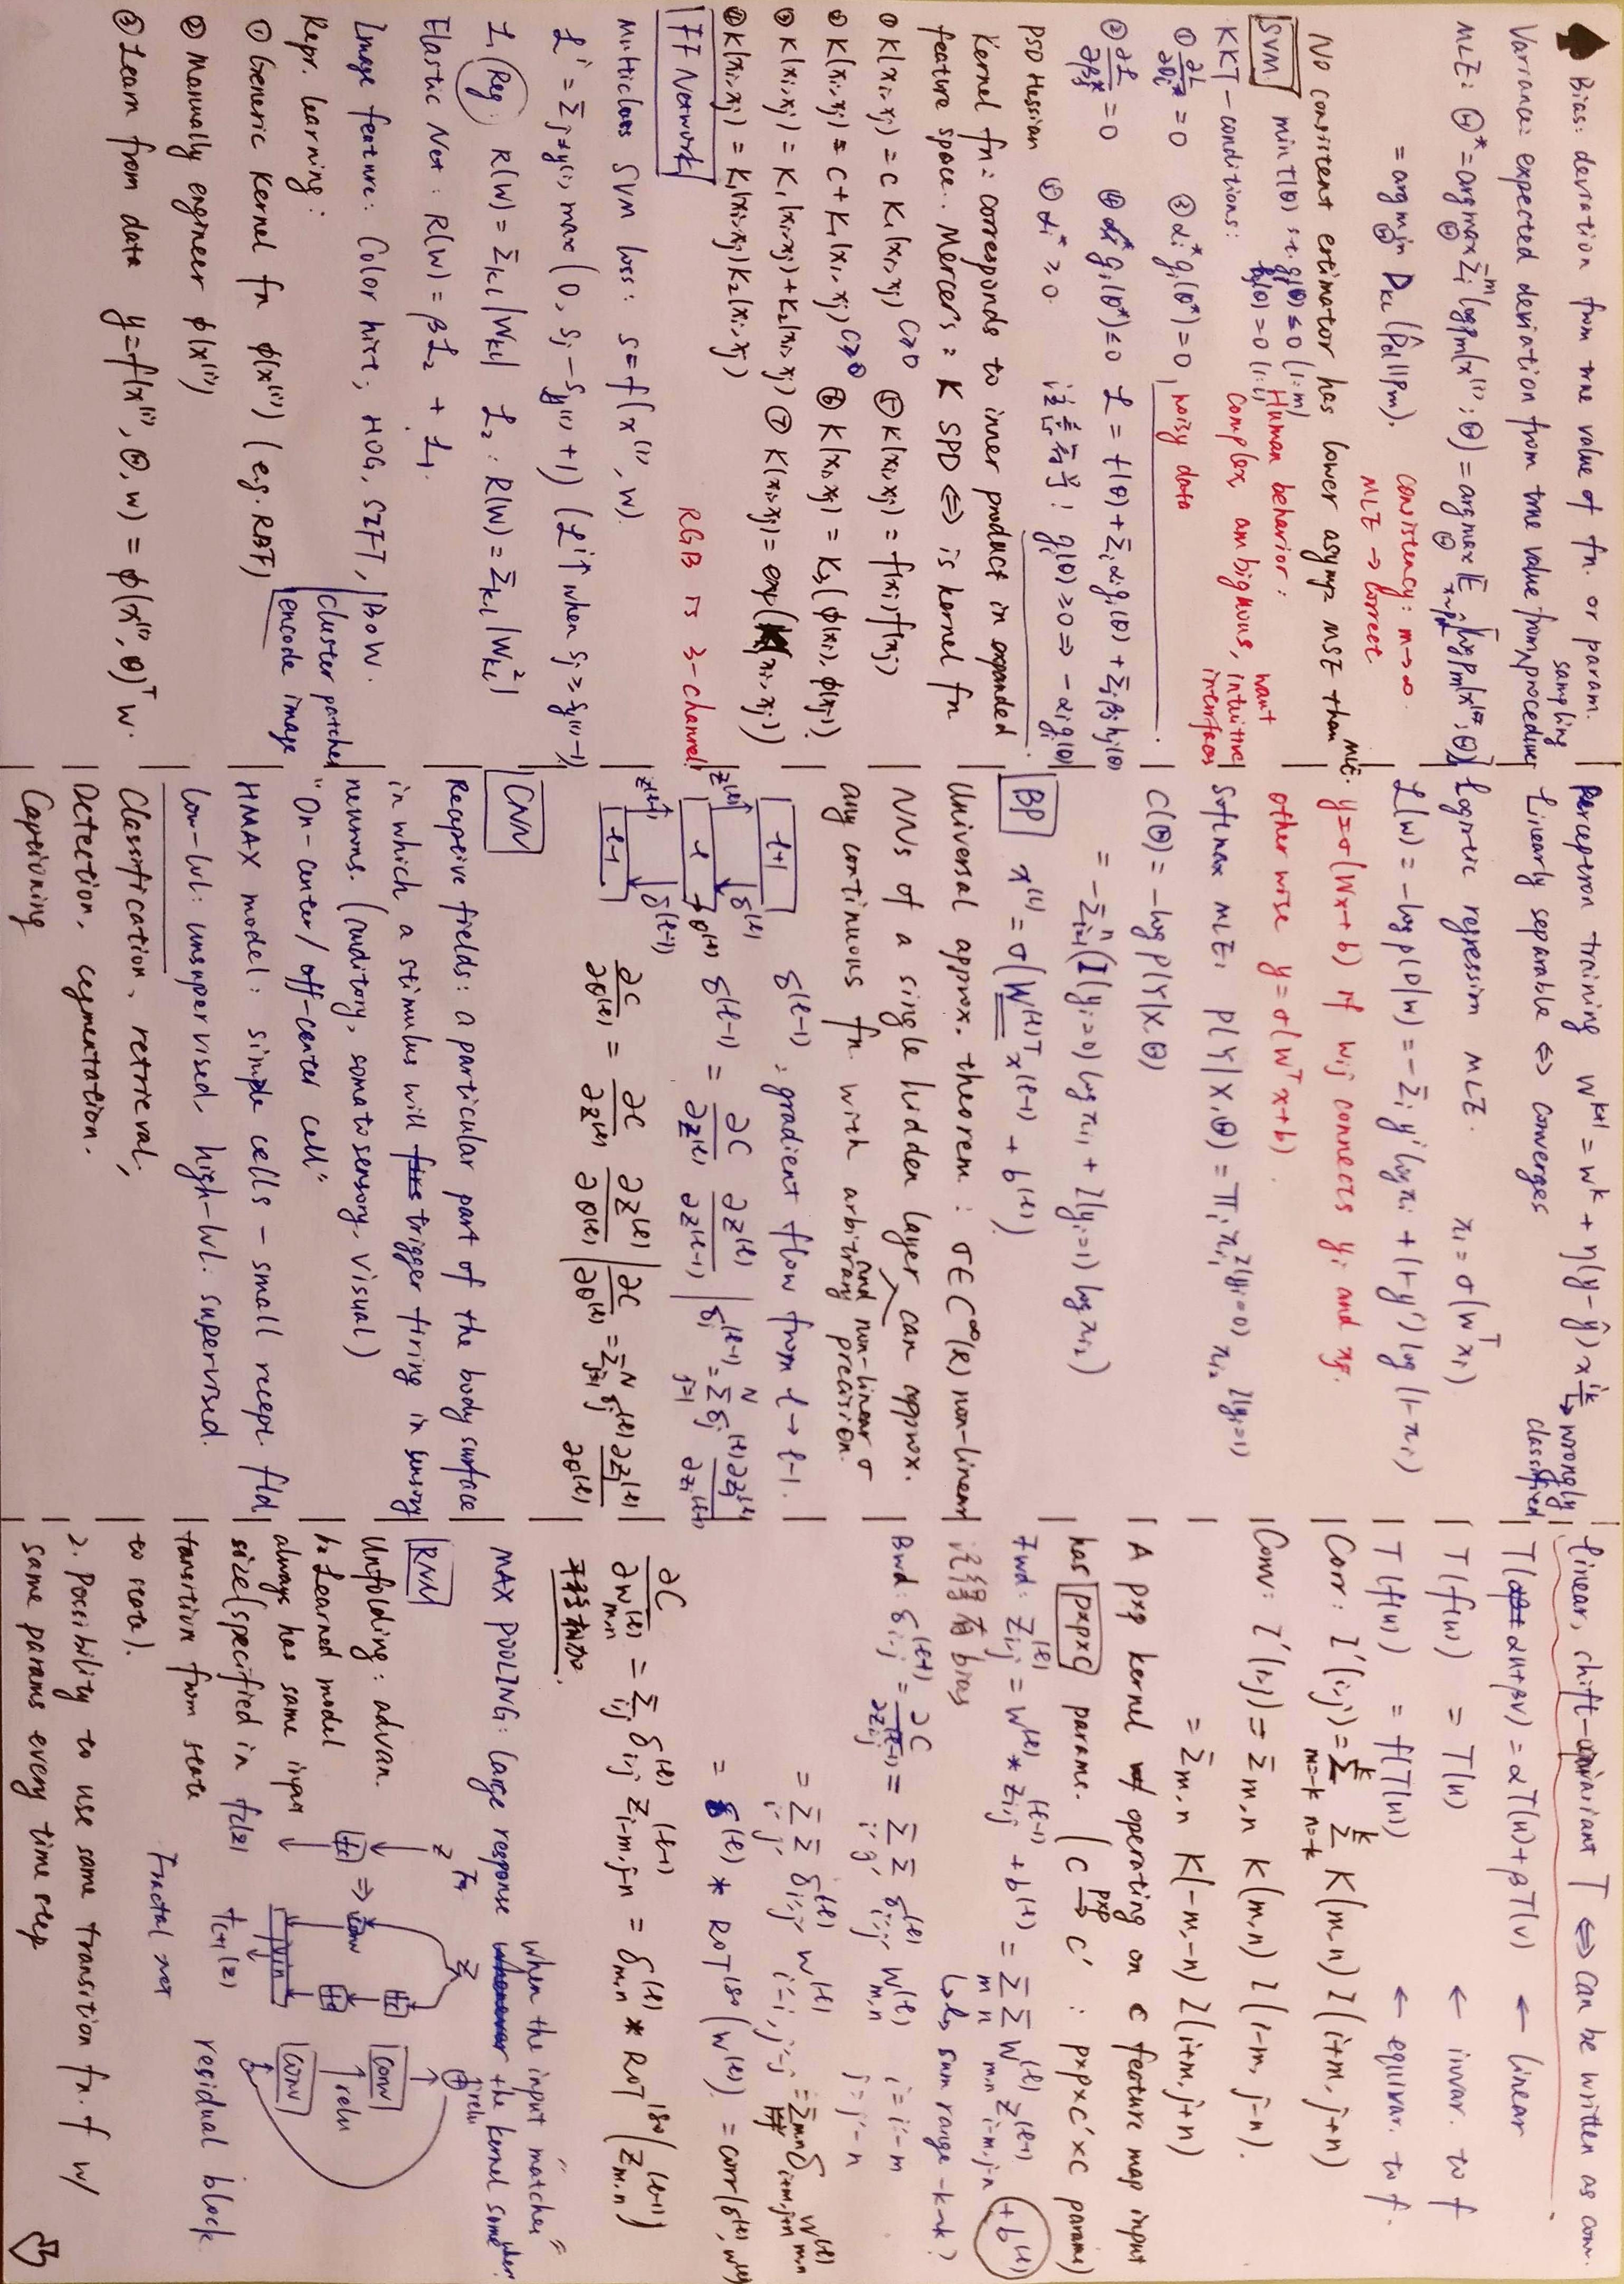 ♠ Bias: deviation from true value of fn. or param.
Variance: expected deviation from true value from sampling procedure
MLE: Θ* = argmax_Θ Σ_i^m log pm(x^(i); Θ) = argmax_Θ E_x~p̂d [log pm(x^(i); Θ)]
= argmin_Θ D_KL(p̂d||pm).
consistency: m→∞.
MLE → correct
No consistent estimator has lower asymp MSE than MLE.
SVM min f(θ) s.t. g_i(θ) ≤ 0 (1:m)
h_j(θ) = 0 (1:l)
Human behavior:
complex, ambiguous, want intuitive interfaces
noisy data
KKT-conditions:
① ∂L/∂θ_i* = 0 ③ α_i* g_i(θ*) = 0
② ∂L/∂β_j* = 0 ④ g_i(θ*) ≤ 0
L = f(θ) + Σ_i α_i g_i(θ) + Σ_j β_j h_j(θ)
PSD Hessian ⑤ α_i* ≥ 0.
注意符号! g_i(θ) ≥ 0 ⇒ -α_i g_i(θ)
Kernel fn: corresponds to inner product in expanded
feature space. Mercer's: K SPD ⇔ is kernel fn
① K(xi, xj) = c K1(xi, xj) c>0 ⑤ K(xi, xj) = f(xi) f(xj)
② K(xi, xj) = c + K1(xi, xj) c>0 ⑥ K(xi, xj) = K3(φ(xi), φ(xj)).
③ K(xi, xj) = K1(xi, xj) + K2(xi, xj) ⑦ K(xi, xj) = exp(K1(xi, xj))
④ K(xi, xj) = K1(xi, xj) K2(xi, xj)
FF Network RGB is 3-channel!
Multiclass SVM loss: s = f(x^(i), W).
L^i = Σ_j≠y^(i) max(0, s_j - s_y^(i) + 1) (L^i↑ when s_j ≥ s_y^(i) - 1)
L1 Reg: R(W) = Σ_kl |W_kl| L2: R(W) = Σ_kl |W_kl^2|
Elastic Net: R(W) = βL2 + L1.
Image feature: Color hist, HOG, SIFT, BoW.
cluster patches
encode image
Repr. learning:
① Generic Kernel fn φ(x^(i)) (e.g. RBF)
② Manually engineer φ(x^(i))
③ Learn from data y = f(x^(i), Θ, w) = φ(x^(i), θ)^T w.
Perceptron training w^k+1 = w^k + η(y - ŷ) x^ik → wrongly classified
Linearly separable ⇔ converges
Logistic regression MLE. π_i = σ(w^T x_i)
L(w) = -log p(D|w) = -Σ_i y^i log π_i + (1-y^i) log(1-π_i)
y = σ(Wx+b) if w_ij connects y_i and x_j.
otherwise y = σ(W^T x + b).
Softmax MLE: p(Y|X,Θ) = Π_i π_i1^I(y_i=0) π_i2^I(y_i=1)
C(Θ) = -log p(Y|X,Θ)
= -Σ_i=1^n (I(y_i=0) log π_i1 + I(y_i=1) log π_i2)
BP x^(l) = σ(W^(l)T x^(l-1) + b^(l)).
Universal approx. theorem: σ∈C^∞(R) non-linear
NNs of a single hidden layer and non-linear σ can approx.
any continuous fn with arbitrary precision.
l+1
l
l-1
z^(l) δ^(l)
z^(l-1) δ^(l-1)
→ θ^(l)
δ^(l-1): gradient flow from l → l-1.
δ^(l-1) = ∂C/∂z^(l) ∂z^(l)/∂z^(l-1) | δ_i^(l-1) = Σ_j=1^N δ_j^(l) ∂z_j^(l)/∂z_i^(l-1)
∂C/∂θ^(l) = ∂C/∂z^(l) ∂z^(l)/∂θ^(l) | ∂C/∂θ^(l) = Σ_j=1^N δ_j^(l) ∂z_j^(l)/∂θ^(l)
CNN
Receptive fields: a particular part of the body surface
in which a stimulus will trigger firing in sensory
neurons. (auditory, somatosensory, visual)
"On-center/off-center cell"
HMAX model: simple cells - small recept. fld
low-lvl: unsupervised, high-lvl: supervised.
Classification, retrieval,
Detection, segmentation.
Captioning
Linear, shift-invariant T ⇔ can be written as conv.
T(αu+βv) = αT(u)+βT(v) ← linear
T(f(u)) = T(u) ← invar. to f
T(f(u)) = f(T(u)) ← equivar. to f.
Corr: I'(i,j) = Σ_m=-k^k Σ_n=-k^k K(m,n) I(i+m, j+n)
Conv: I'(i,j) = Σ_m,n K(m,n) I(i-m, j-n).
= Σ_m,n K(-m,-n) I(i+m, j+n)
A p×p kernel operating on C feature map input
has p×p×C params. (C →^p×p C' : p×p×C'×C params)
Fwd: z_i,j^(l) = W^(l) * z_i,j^(l-1) + b^(l) = Σ_m Σ_n W_m,n^(l) z_i-m,j-n^(l-1) + b^(l)
记得有 bias ↳ sum range -k~k?
Bwd: δ_i,j^(l-1) = ∂C/∂z_i,j^(l-1) = Σ_i' Σ_j' δ_i',j'^(l) W_m,n^(l) i = i'-m
j = j'-n
= Σ_i' Σ_j' δ_i',j'^(l) W_i'-i,j'-j^(l) = Σ_m,n δ_i+m,j+n^(l) W_m,n^(l)
= δ^(l) * ROT180(W^(l)) = corr(δ^(l), W^(l))
∂C/∂W_m,n^(l) = Σ_i,j δ_i,j^(l) z_i-m,j-n^(l-1) = δ_m,n^(l) * ROT180(z_m,n^(l-1))
MAX POOLING: large response when the input "matches"
the kernel somewhere.
RNN
Unfolding: advan.
1. Learned model
always has same input
size (specified in
transition from state
to state).
2. Possibility to use same transition fn. f w/
same params every time step
z
conv
join
f_c(z) f_c+1(z)
Fractal net
relu
conv
relu
conv
residual block